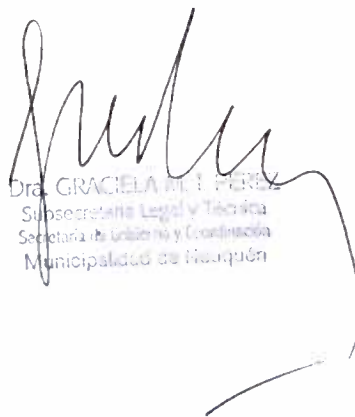 Dra. GRACIELA M. T. PEREZ
Subsecretaria Legal y Técnica
Secretaría de Gobierno y Coordinación
Municipalidad de Neuquén